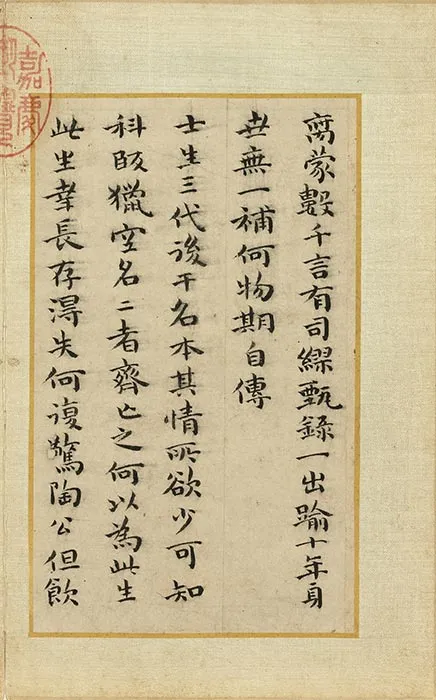 蒙數千言有司繆甄錄一出踰十年身
世無一補何物期自傳
士生三代後干名本其情所欲少可知
科獵空名二者齊亡之何以為此生
此生幸長存得失何復驚陶公但飲
嘉慶